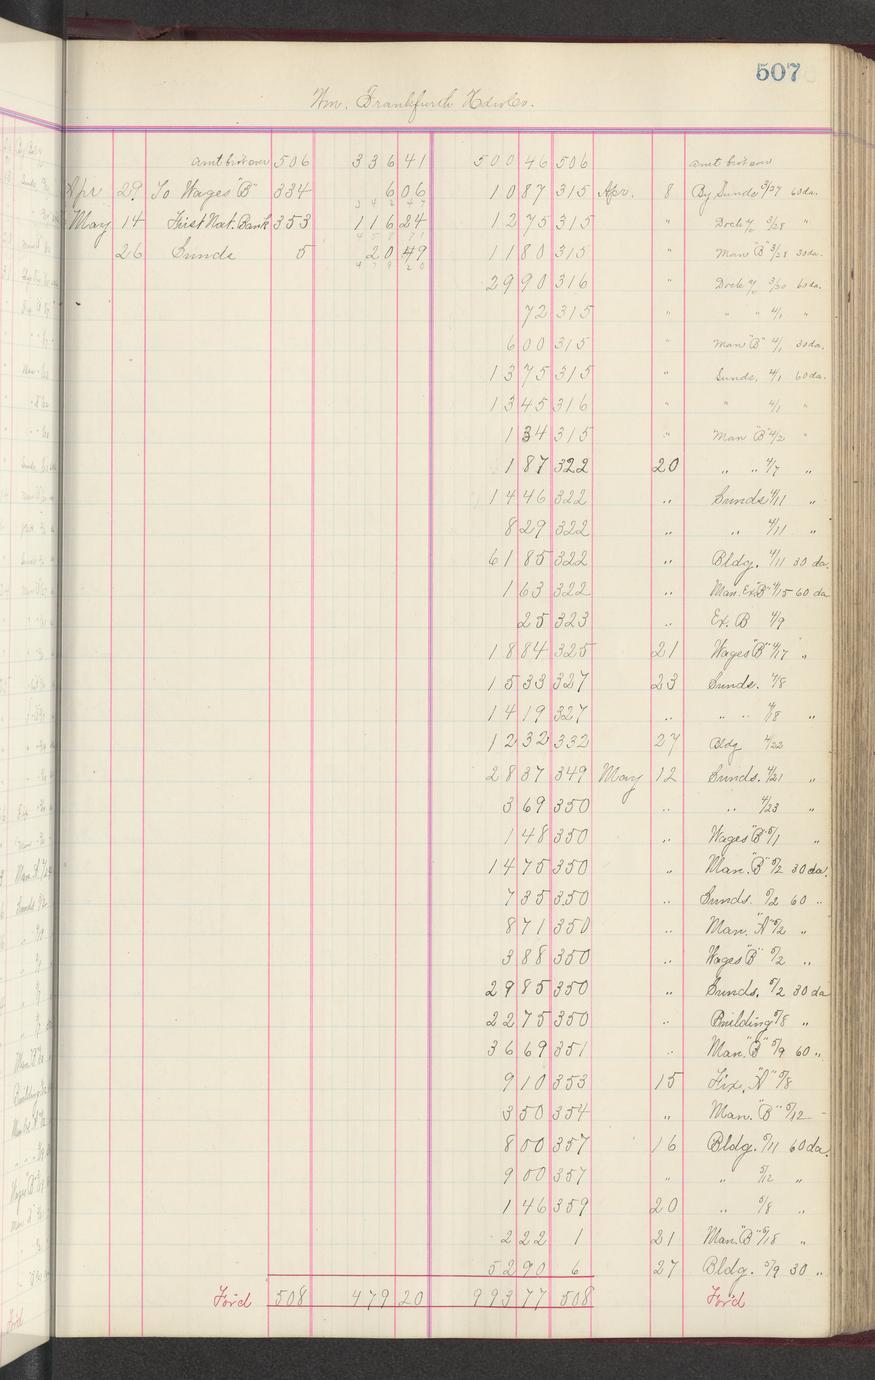 507
Wm. Frankfurth Hdw. Co.
amt brot over 506 336 41 500 46 506 amt brot over
Apr 29 To Wages "B" 334 6 06 10 87 315 Apr. 8 By Sunds 3/27 60 da.
342 47
May 14 First Nat. Bank 353 116 24 12 75 315 " Dock % 3/28 "
458 71
26 Sunds 5 20 49 11 80 315 " Man "B" 3/28 30 da.
479 20
29 90 316 " Dock % 3/30 60 da.
72 315 " " " 4/1 "
6 00 315 " Man "B" 4/1 30 da.
13 75 315 " Sunds. 4/1 60 da.
13 45 316 " " 4/1 "
1 34 315 " Man "B" 4/2 "
1 87 322 20 " " 4/7 "
14 46 322 " Sunds 4/11 "
8 29 322 " " 4/11 "
61 85 322 " Bldg. 4/11 30 da.
1 63 322 " Man. Ex. "B" 4/15 60 da
25 323 " Ex. B 4/9
18 84 325 21 Wages "B" 4/17 "
15 33 327 23 Sunds. 4/8
14 19 327 " " " 4/18 "
12 32 332 27 Bldg 4/22
28 37 349 May 12 Sunds. 4/21 "
3 69 350 " " 4/23 "
1 48 350 " Wages "B" 5/1 "
14 75 350 " Man. "B" 5/2 30 da.
7 35 350 " Sunds. 5/2 60 "
8 71 350 " Man. "A" 5/2 "
3 88 350 " Wages "B" 5/2 "
29 85 350 " Sunds. 5/2 30 da
22 75 350 " Building 5/8 "
36 69 351 " Man. "B" 5/9 60 "
9 10 353 15 Fix. "A" 5/8
3 50 354 " Man. "B" 5/12
8 00 357 16 Bldg. 5/11 60 da.
9 00 357 " " 5/12 "
1 46 359 20 " 5/8 "
2 22 1 21 Man. "B" 5/18 "
52 90 6 27 Bldg. 5/9 30 "
For'd 508 479 20 993 77 508 For'd